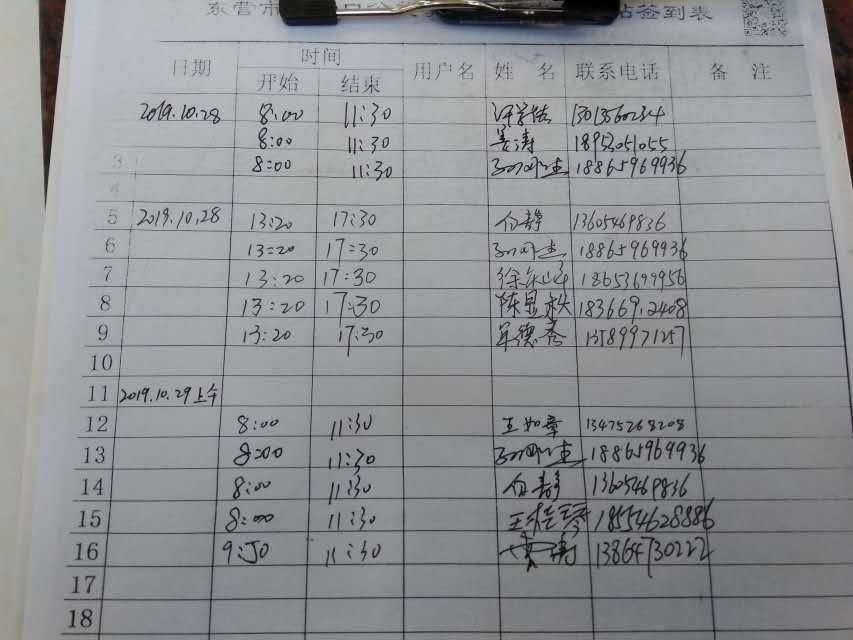 东营市 签到表
日期 时间 用户名 姓 名 联系电话 备 注
开始 结束
2019.10.28 8:00 11:30
8:00 11:30 姜涛 18953051055
3 8:00 11:30 18865969936
4
5 2019.10.28 13:20 17:30 白静 13605469836
6 13:20 17:30 18865969936
7 13:20 17:30 18653699956
8 13:20 17:30
9 13:20 17:30 13589971257
10
11 2019.10.29上午
12 8:00 11:30 王如章 13475268208
13 8:00 11:30 18865969936
14 8:00 11:30 白静 13605469836
15 8:00 11:30 18554628886
16 11:30 13864730222
17
18